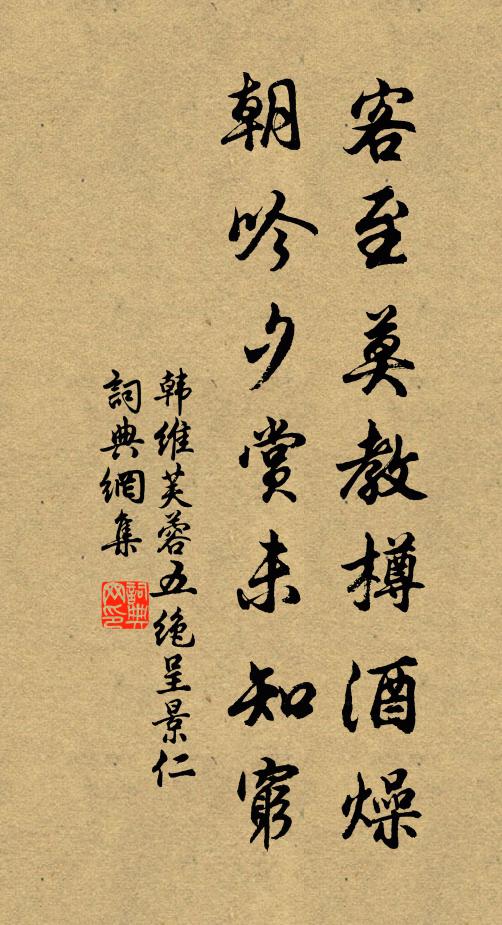 客至莫教樽酒燥
朝吟夕赏未知穷
韩维芙蓉五绝呈景仁
词典網集
詞典網印